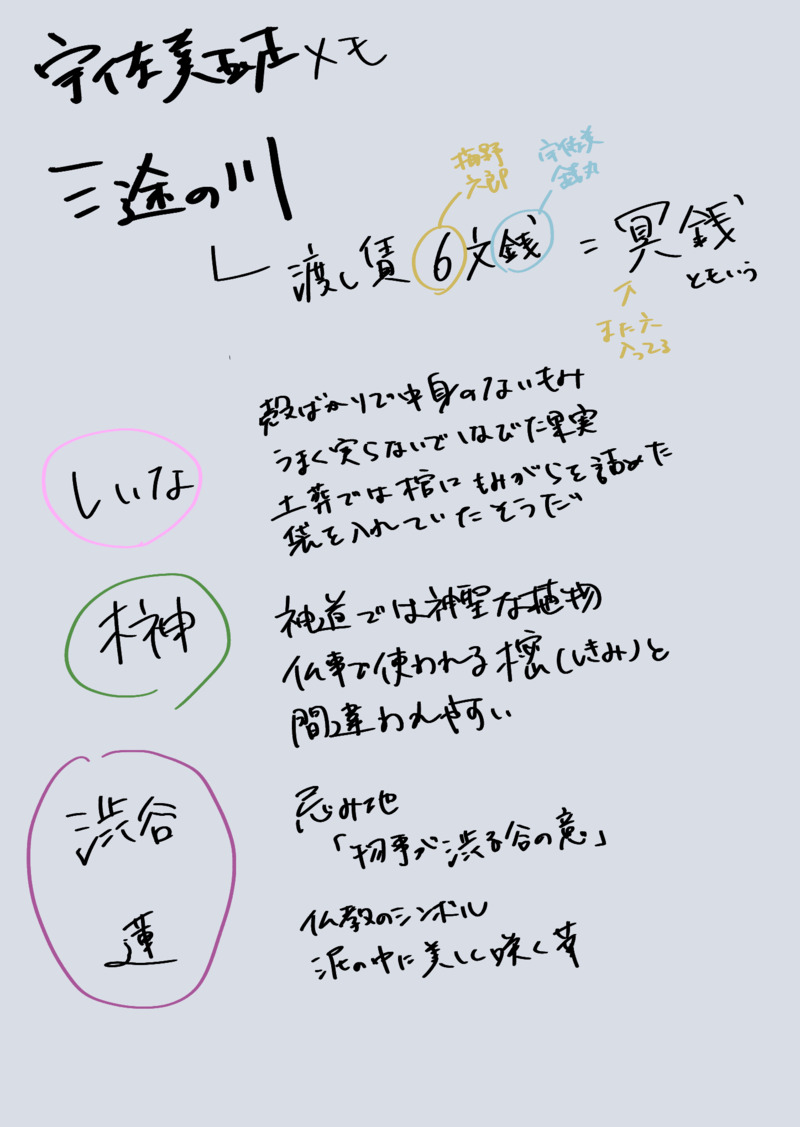 宇佐美班メモ
三途の川
梅野
六郎
宇佐美
銭丸
渡し賃 6文銭 = 冥銭
ともいう
また六
入ってる
しいな
殻ばかりで中身のないもみ
うまく実らないでしなびた果実
土葬では棺にもみがらを詰めた
袋を入れていたそうだ
榊
神道では神聖な植物
仏事で使われる樒(しきみ)と
間違われやすい
渋谷
忌み地
「物事が渋る谷の意」
蓮
仏教のシンボル
泥の中に美しく咲く華